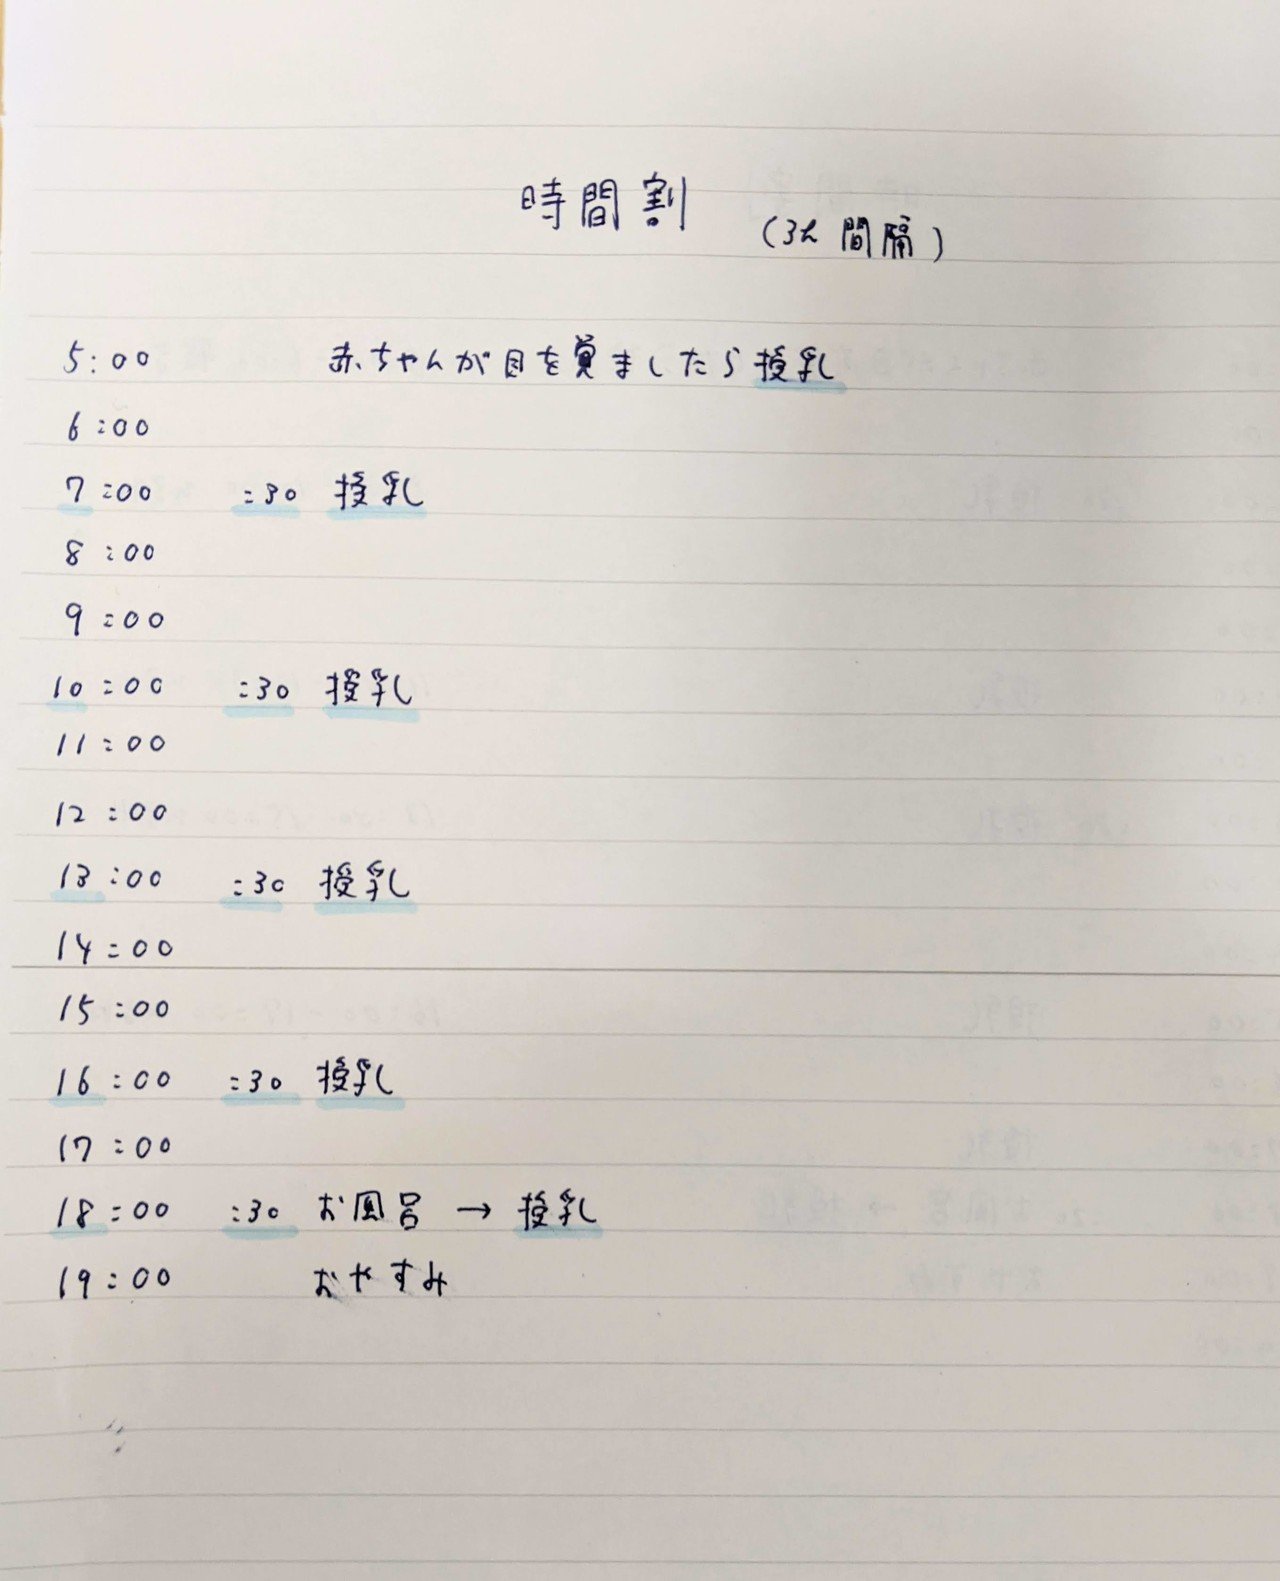 時間割
(3h 間隔)
5:00 赤ちゃんが目を覚ましたら授乳
6:00
7:00 :30 授乳
8:00
9:00
10:00 :30 授乳
11:00
12:00
13:00 :30 授乳
14:00
15:00
16:00 :30 授乳
17:00
18:00 :30 お風呂 → 授乳
19:00 おやすみ